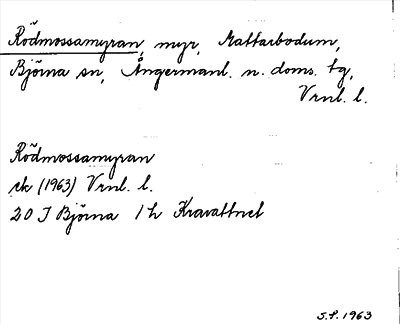 Rödmossamyran, myr, Mattarbodum,
Björna sn, Ångermanl. n. doms. tg,
Vrnl. l.
Rödmossamyran
ek (1963) Vrnl. l.
20 I Björna 1 h Kravattnet
S.P. 1963